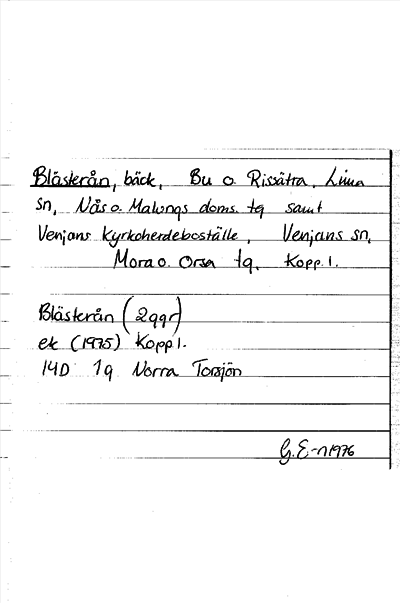 Blästerån, bäck, Bu o. Rissätra, Lima
sn, Nås o. Malungs doms. tg samt
Venjans Kyrkoherdeboställe, Venjans sn,
Mora o. Orsa tg. Kopp. l.
Blästerån (2ggr)
ek (1975) Kopp l.
14D 1g Norra Torsjön
G. E-n 1976